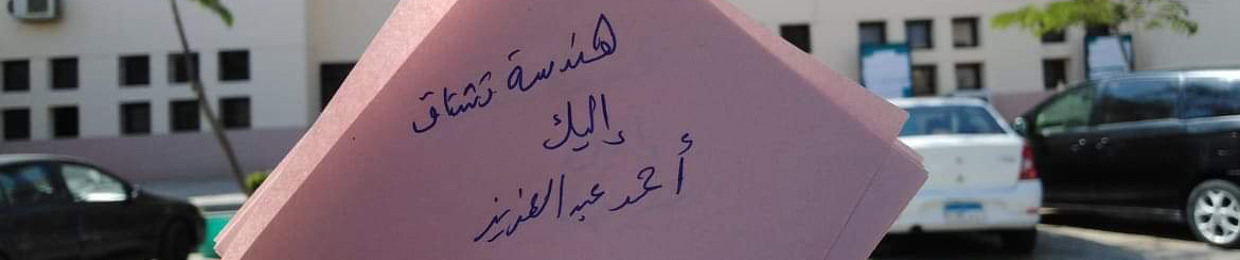 هندسة تشتاق
إليك
أحمد عبد العزيز